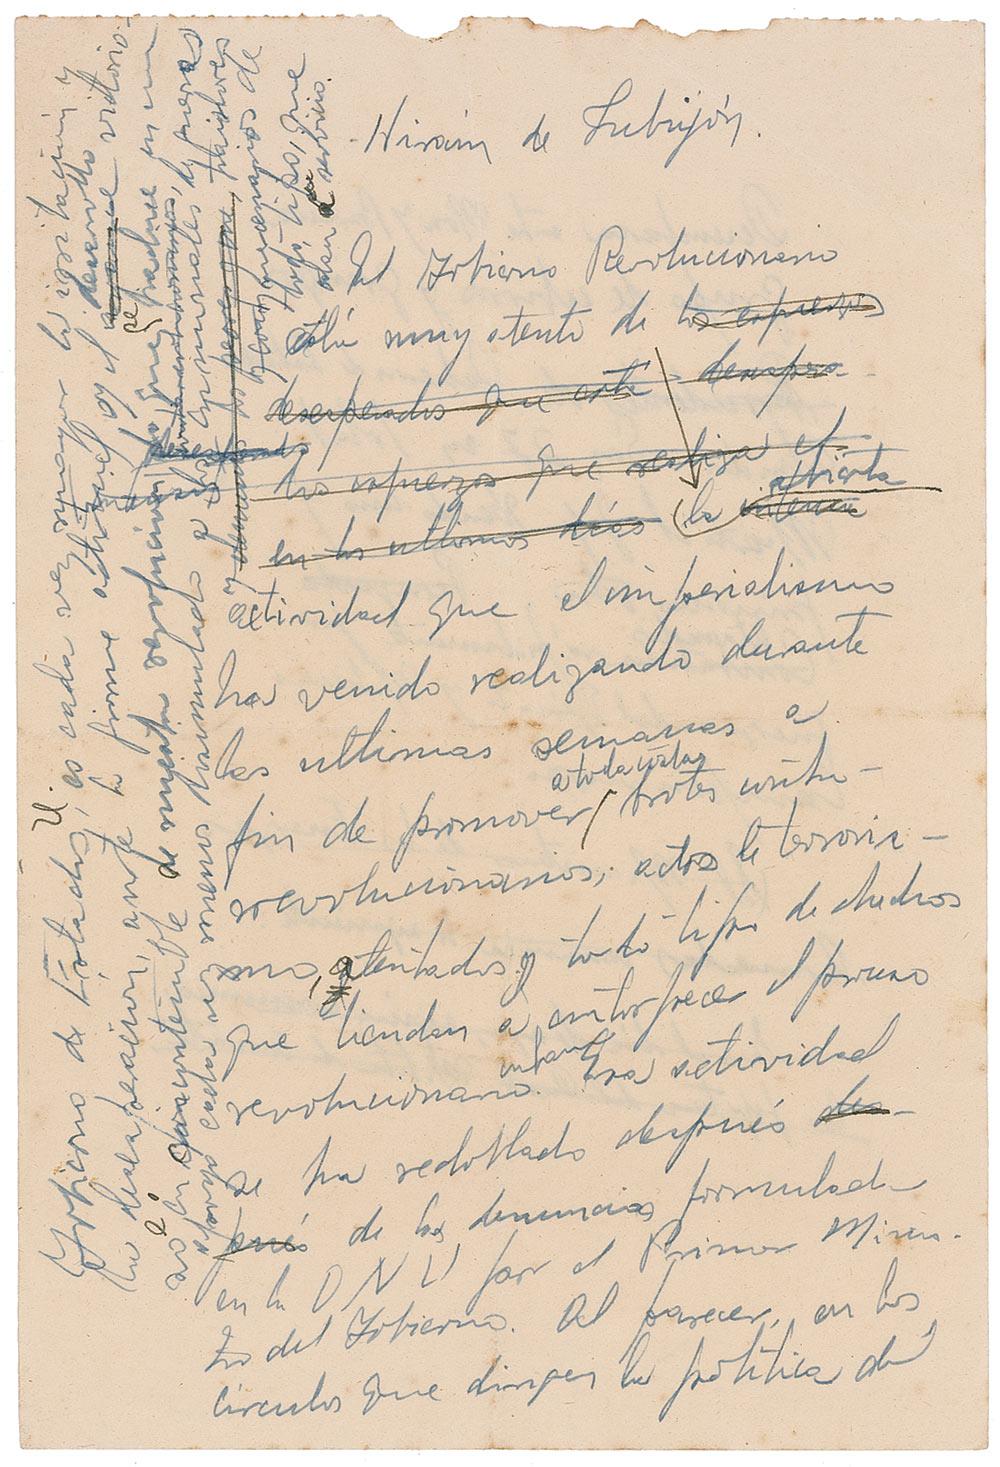 Hirám de Lubijón.
El Gobierno Revolucionario
está muy atento de los esfuerzos
desesperados que está desespera-
los esfuerzos que realiza el
en los ultimos días la intensa abierta
actividad que el imperialismo
ha venido realizando durante
las ultimas semanas a
fin de promover a toda costa brotes contra-
revolucionarios, actos de terroris-
mo, atentados y todo tipo de hechos
que tiendan a entorpecer el proceso
revolucionario. Esa actividad
se ha redoblado después des-
pués de las denuncias formulad
en la ONU por el Primer Minis-
tro del Gobierno. Al parecer, en los
círculos que dirigen la política del
Gobierno de Estados U. es cada vez mayor la irritación y
la desesperación, ante la firme actitud y el avance desarrollo victorio-
de nuestra revolución, lo que se traduce en un
apoyo cada vez menos disimulado a los criminales de guerra
y demás traidores
y mercenarios de
todo tipo, que
están a su servicio.